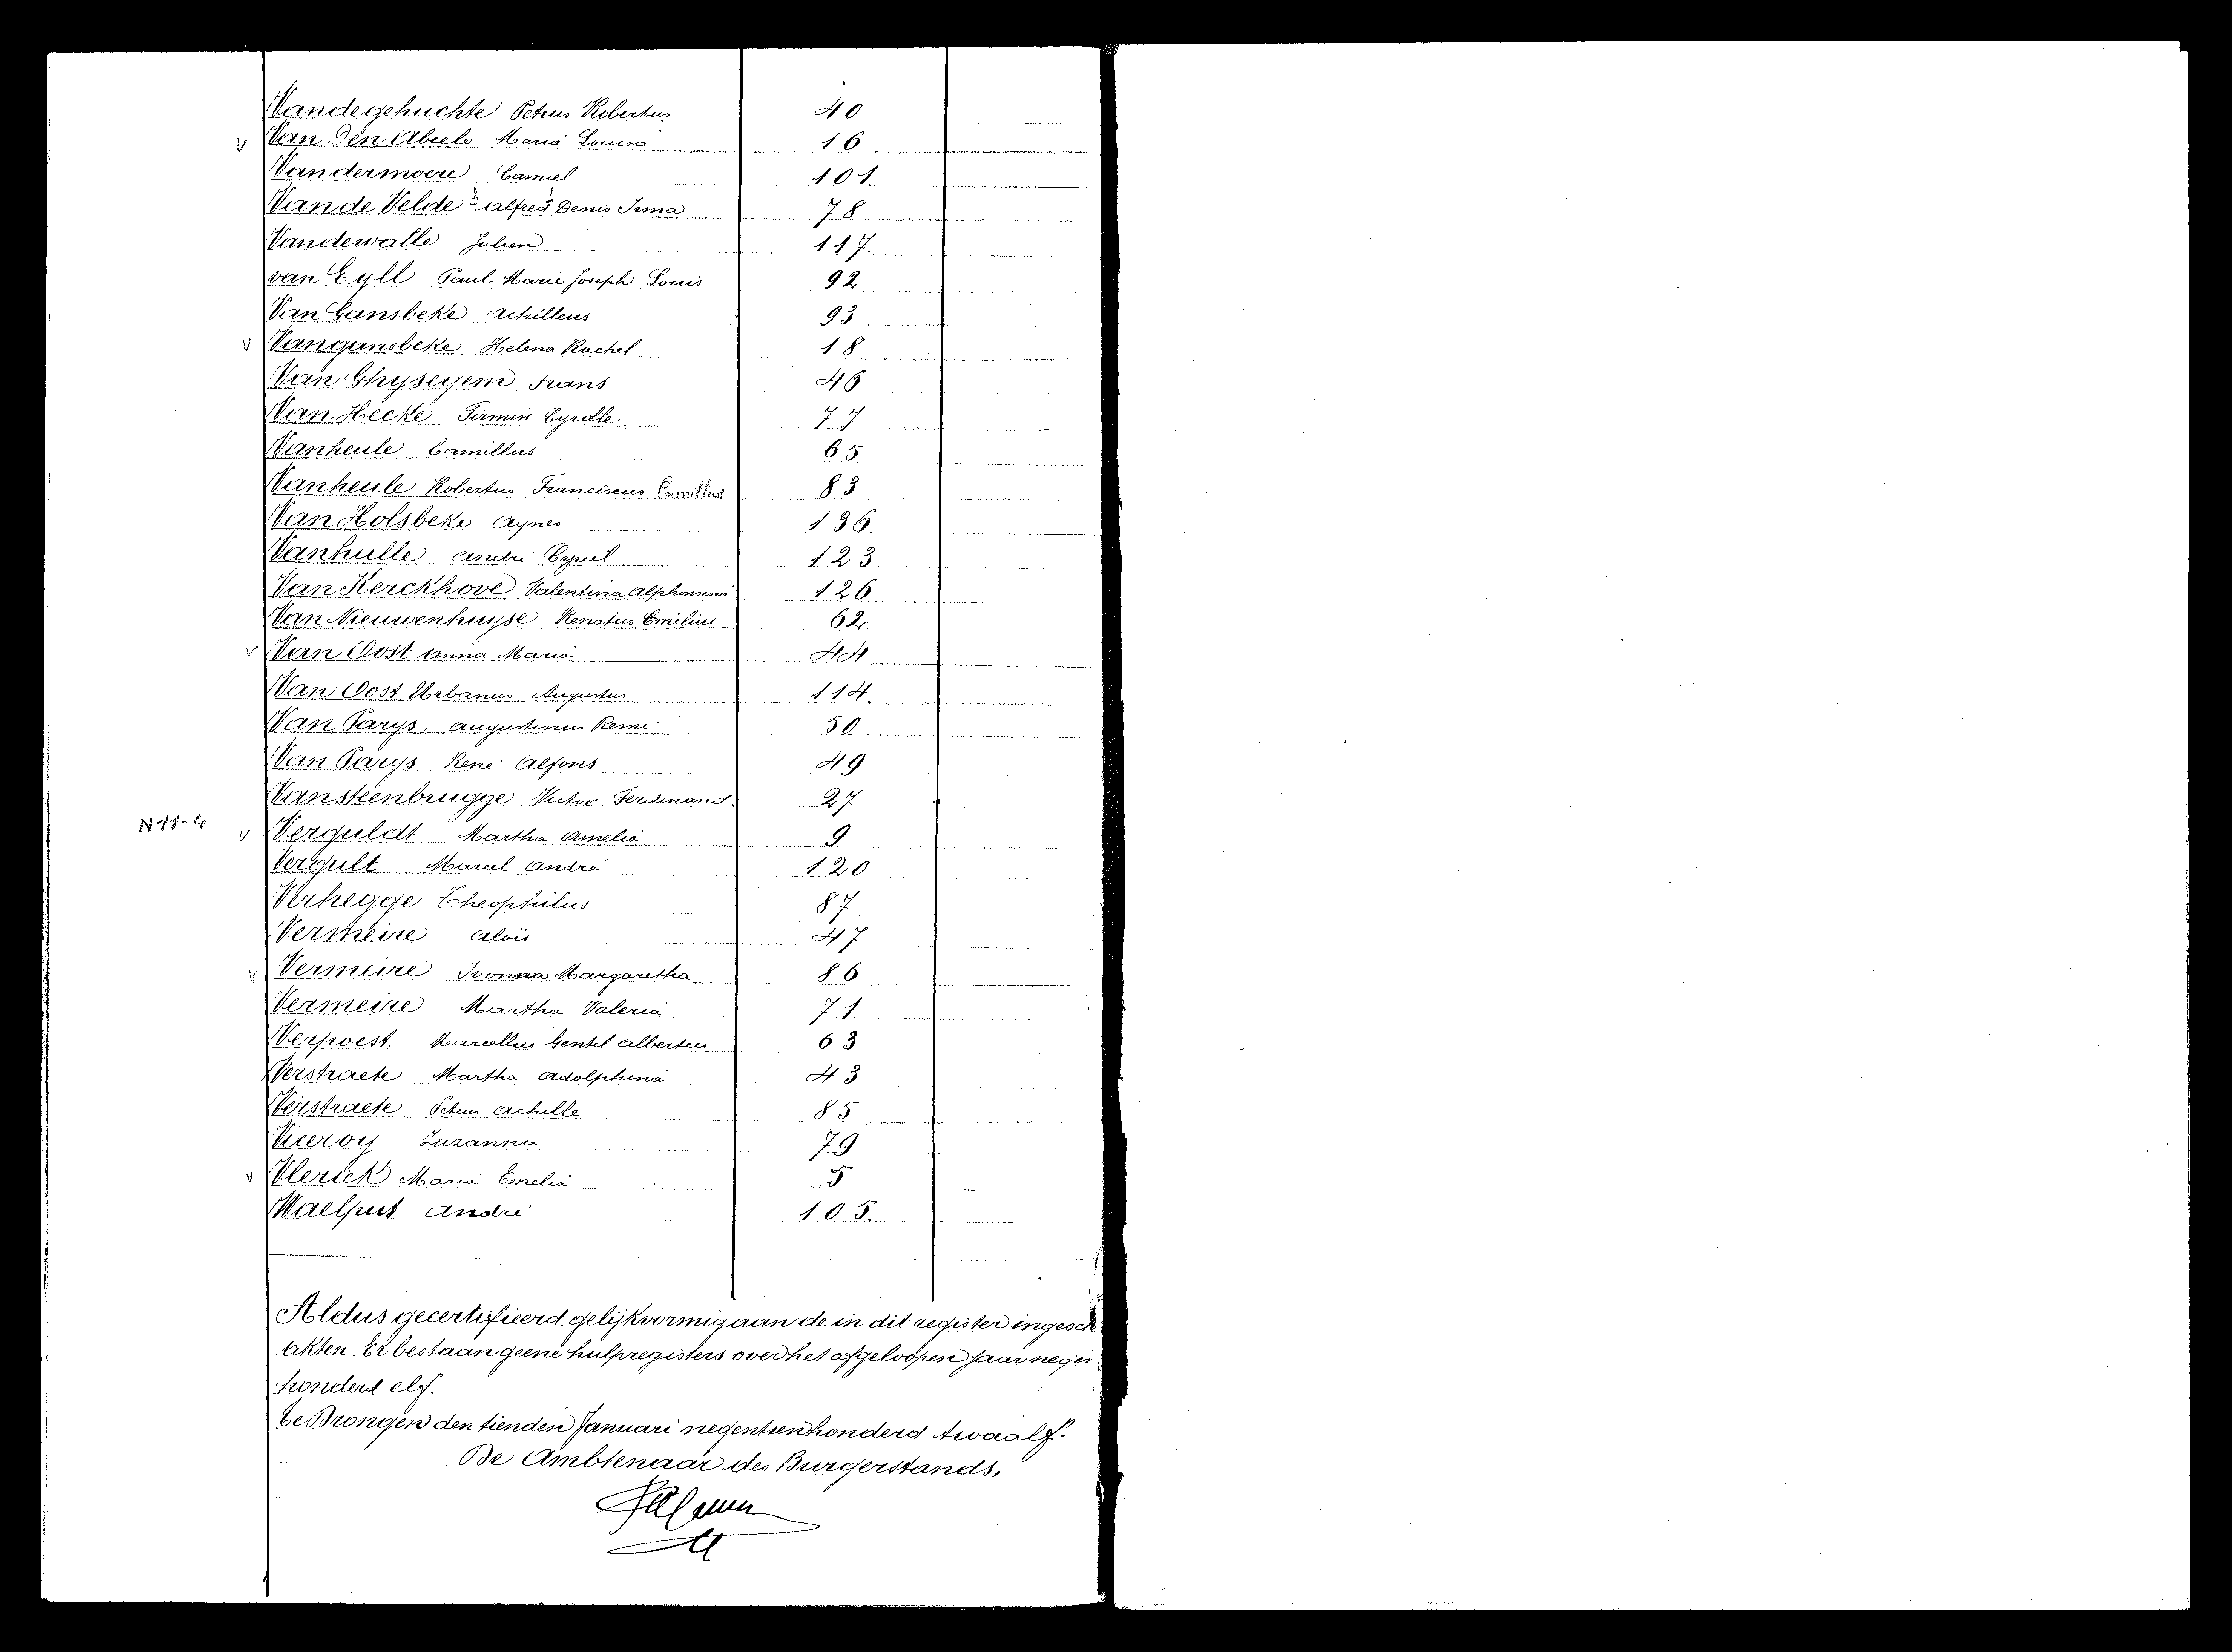 Vandegehuchte Petrus Robertus 40
v Van Den Abeele Maria Louisa 16
Vandermoere Camiel 101.
Van de Velde Alfred Denis Irma 78
Vandewalle Julien 117.
van Eyll Paul Marie Joseph Louis 92
Van Gansbeke Achilleus 93
v Vangansbeke Helena Rachel. 18
Van Ghysegem Frans 46
Van Hecke Firmin Cyrille 77
Vanheule Camillus 65
Vanheule Robertus Franciscus Camillus 83
Van Holsbeke Agnes 136
Vanhulle André Cyriel 123
Van Kerckhove Valentina Alphonsina 126
Van Nieuwenhuyse Renatus Emilius 62
v Van Oost Anna Maria 44
Van Oost Urbanus Augustus 114.
Van Parys, Augustinus Remi 50
Van Parys René Alfons 49
Vansteenbrugge Victor Ferdinand. 27
N 11-4 v Verguldt Martha Amelia 9
Vergult Marcel André 120
Verhegge Theophilus 87
Vermeire Aloïs 47
v Vermeire Ivonna Margaretha 86
Vermeire Martha Valeria 71.
Verpoest. Marcellus Gentil Albertus 63
Verstraete Martha Adolphina 43
Verstraete Petrus Achille 85
Viceroy Zuzanna 79
v Vlerick Maria Emelia 5
Waelput André 105.
Aldus gecertifieerd gelijkvormig aan de in dit register ingesch
akten. Er bestaan geene hulpregisters over het afgeloopen jaar negen
honderd elf.
te Drongen den tienden Januari negentienhonderd twaalf.
De Ambtenaar des Burgerstands,